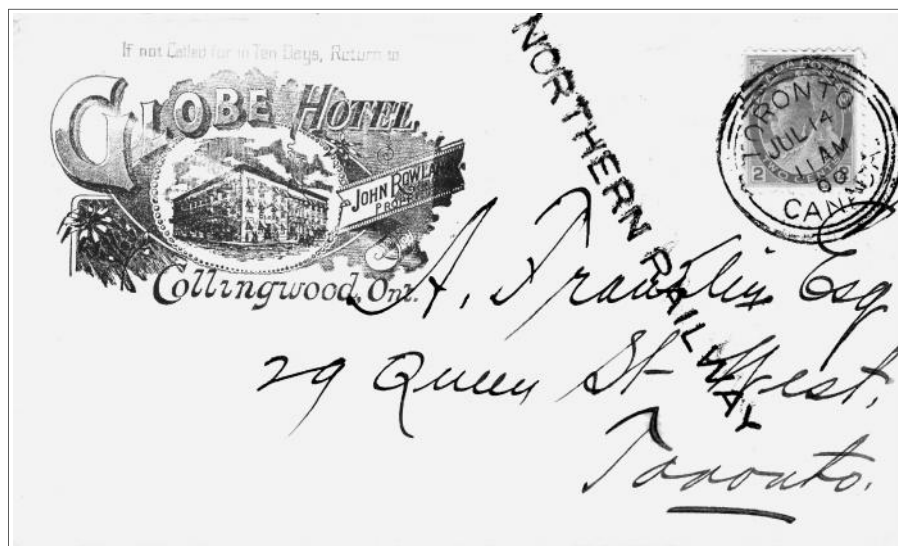 If not Called for in Ten Days, Return to
GLOBE HOTEL,
JOHN ROWLA
PROP
Collingwood, Ont.
NORTHERN RAILWAY
TORONTO
JUL 14
11 AM
00
CANADA
2
A. Franklin Esq
29 Queen St West,
Toronto.